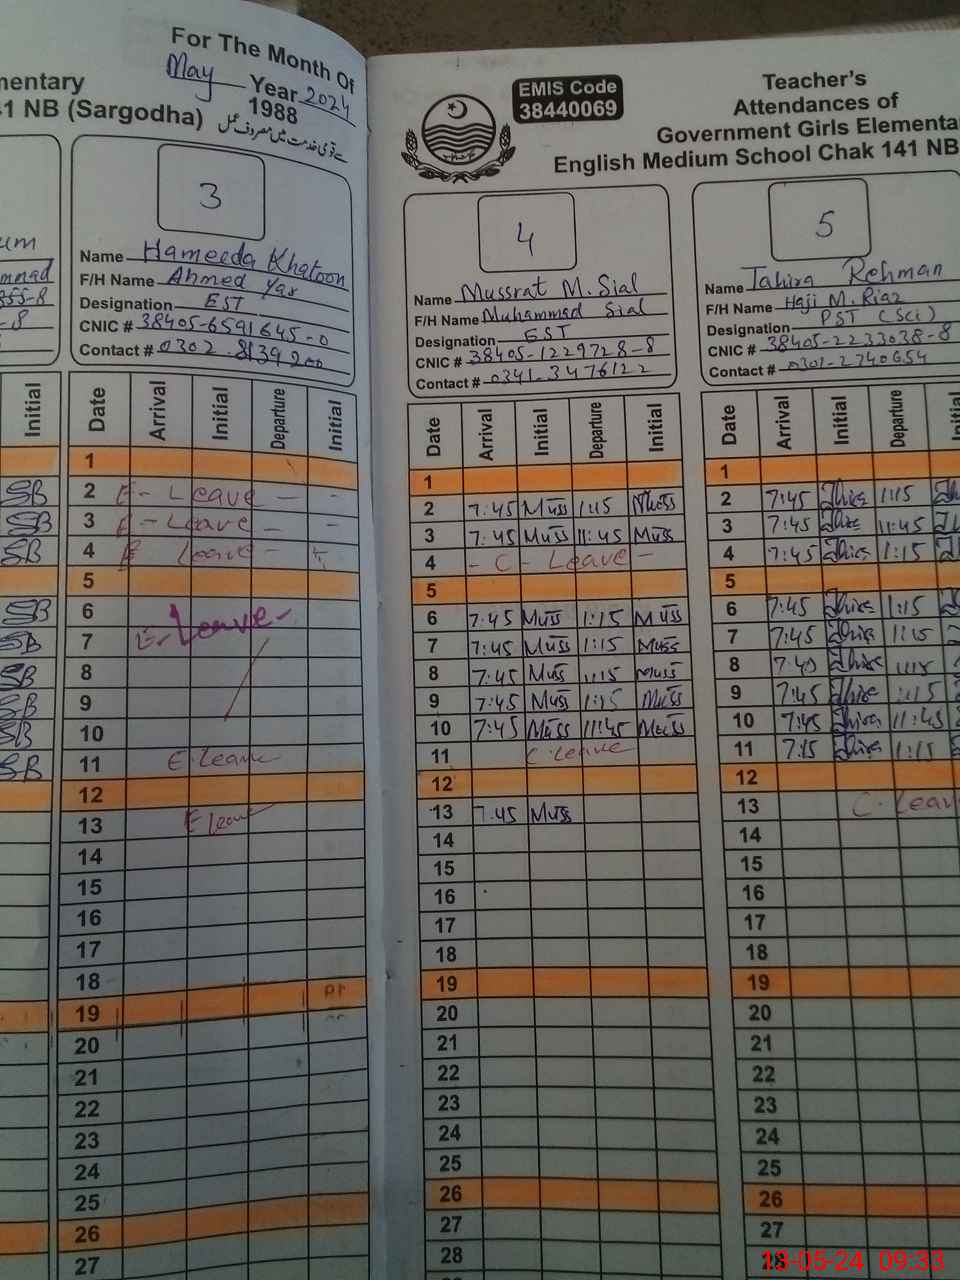 For The Month Of
May Year 2024
1988
mentary
1 NB (Sargodha)
3
Name Hameeda Khatoon
F/H Name Ahmed Yar
Designation EST
CNIC # 38405-6591645-0
Contact # 0302.8139200
Initial
Date Arrival Initial Departure Initial
1
SB 2 E - Leave - -
SB 3 E - Leave - -
SB 4 E Leave -
5
SB 6
SB 7 E - Leave -
SB 8
SB 9
SB 10
SB 11 E. Leave
12
13 E Leave
14
15
16
17
18
19
20
21
22
23
24
25
26
27
EMIS Code
38440069
Teacher's
Attendances of
Government Girls Elementa
English Medium School Chak 141 NB
4
Name Mussrat M. Sial
F/H Name Muhammad Sial
Designation EST
CNIC # 38405-1229728-8
Contact # 0341-3476122
Date Arrival Initial Departure Initial
1
2 7:45 Muss 1:15 Muss
3 7:45 Muss 11:45 Muss
4 - C - Leave -
5
6 7:45 Muss 1:15 Muss
7 7:45 Muss 1:15 Muss
8 7:45 Muss 1:15 Muss
9 7:45 Muss 1:15 Muss
10 7:45 Muss 11:45 Muss
11 C. Leave
12
13 7.45 Muss
14
15
16
17
18
19
20
21
22
23
24
25
26
27
28
5
Name Tahira Rehman
F/H Name Haji M. Riaz
Designation PST (Sci)
CNIC # 38405-2233038-8
Contact # 0301-2740654
Date Arrival Initial Departure
1
2 7:45 1:15
3 7:45 11:45
4 7:45 1:15
5
6 7:45 1:15
7 7:45 1:15
8 7:45 1:15
9 7:45 1:15
10 7:45 11:45
11 7:15 1:15
12
13 C. Leave
14
15
16
17
18
19
20
21
22
23
24
25
26
27
28
13-05-24 09:33